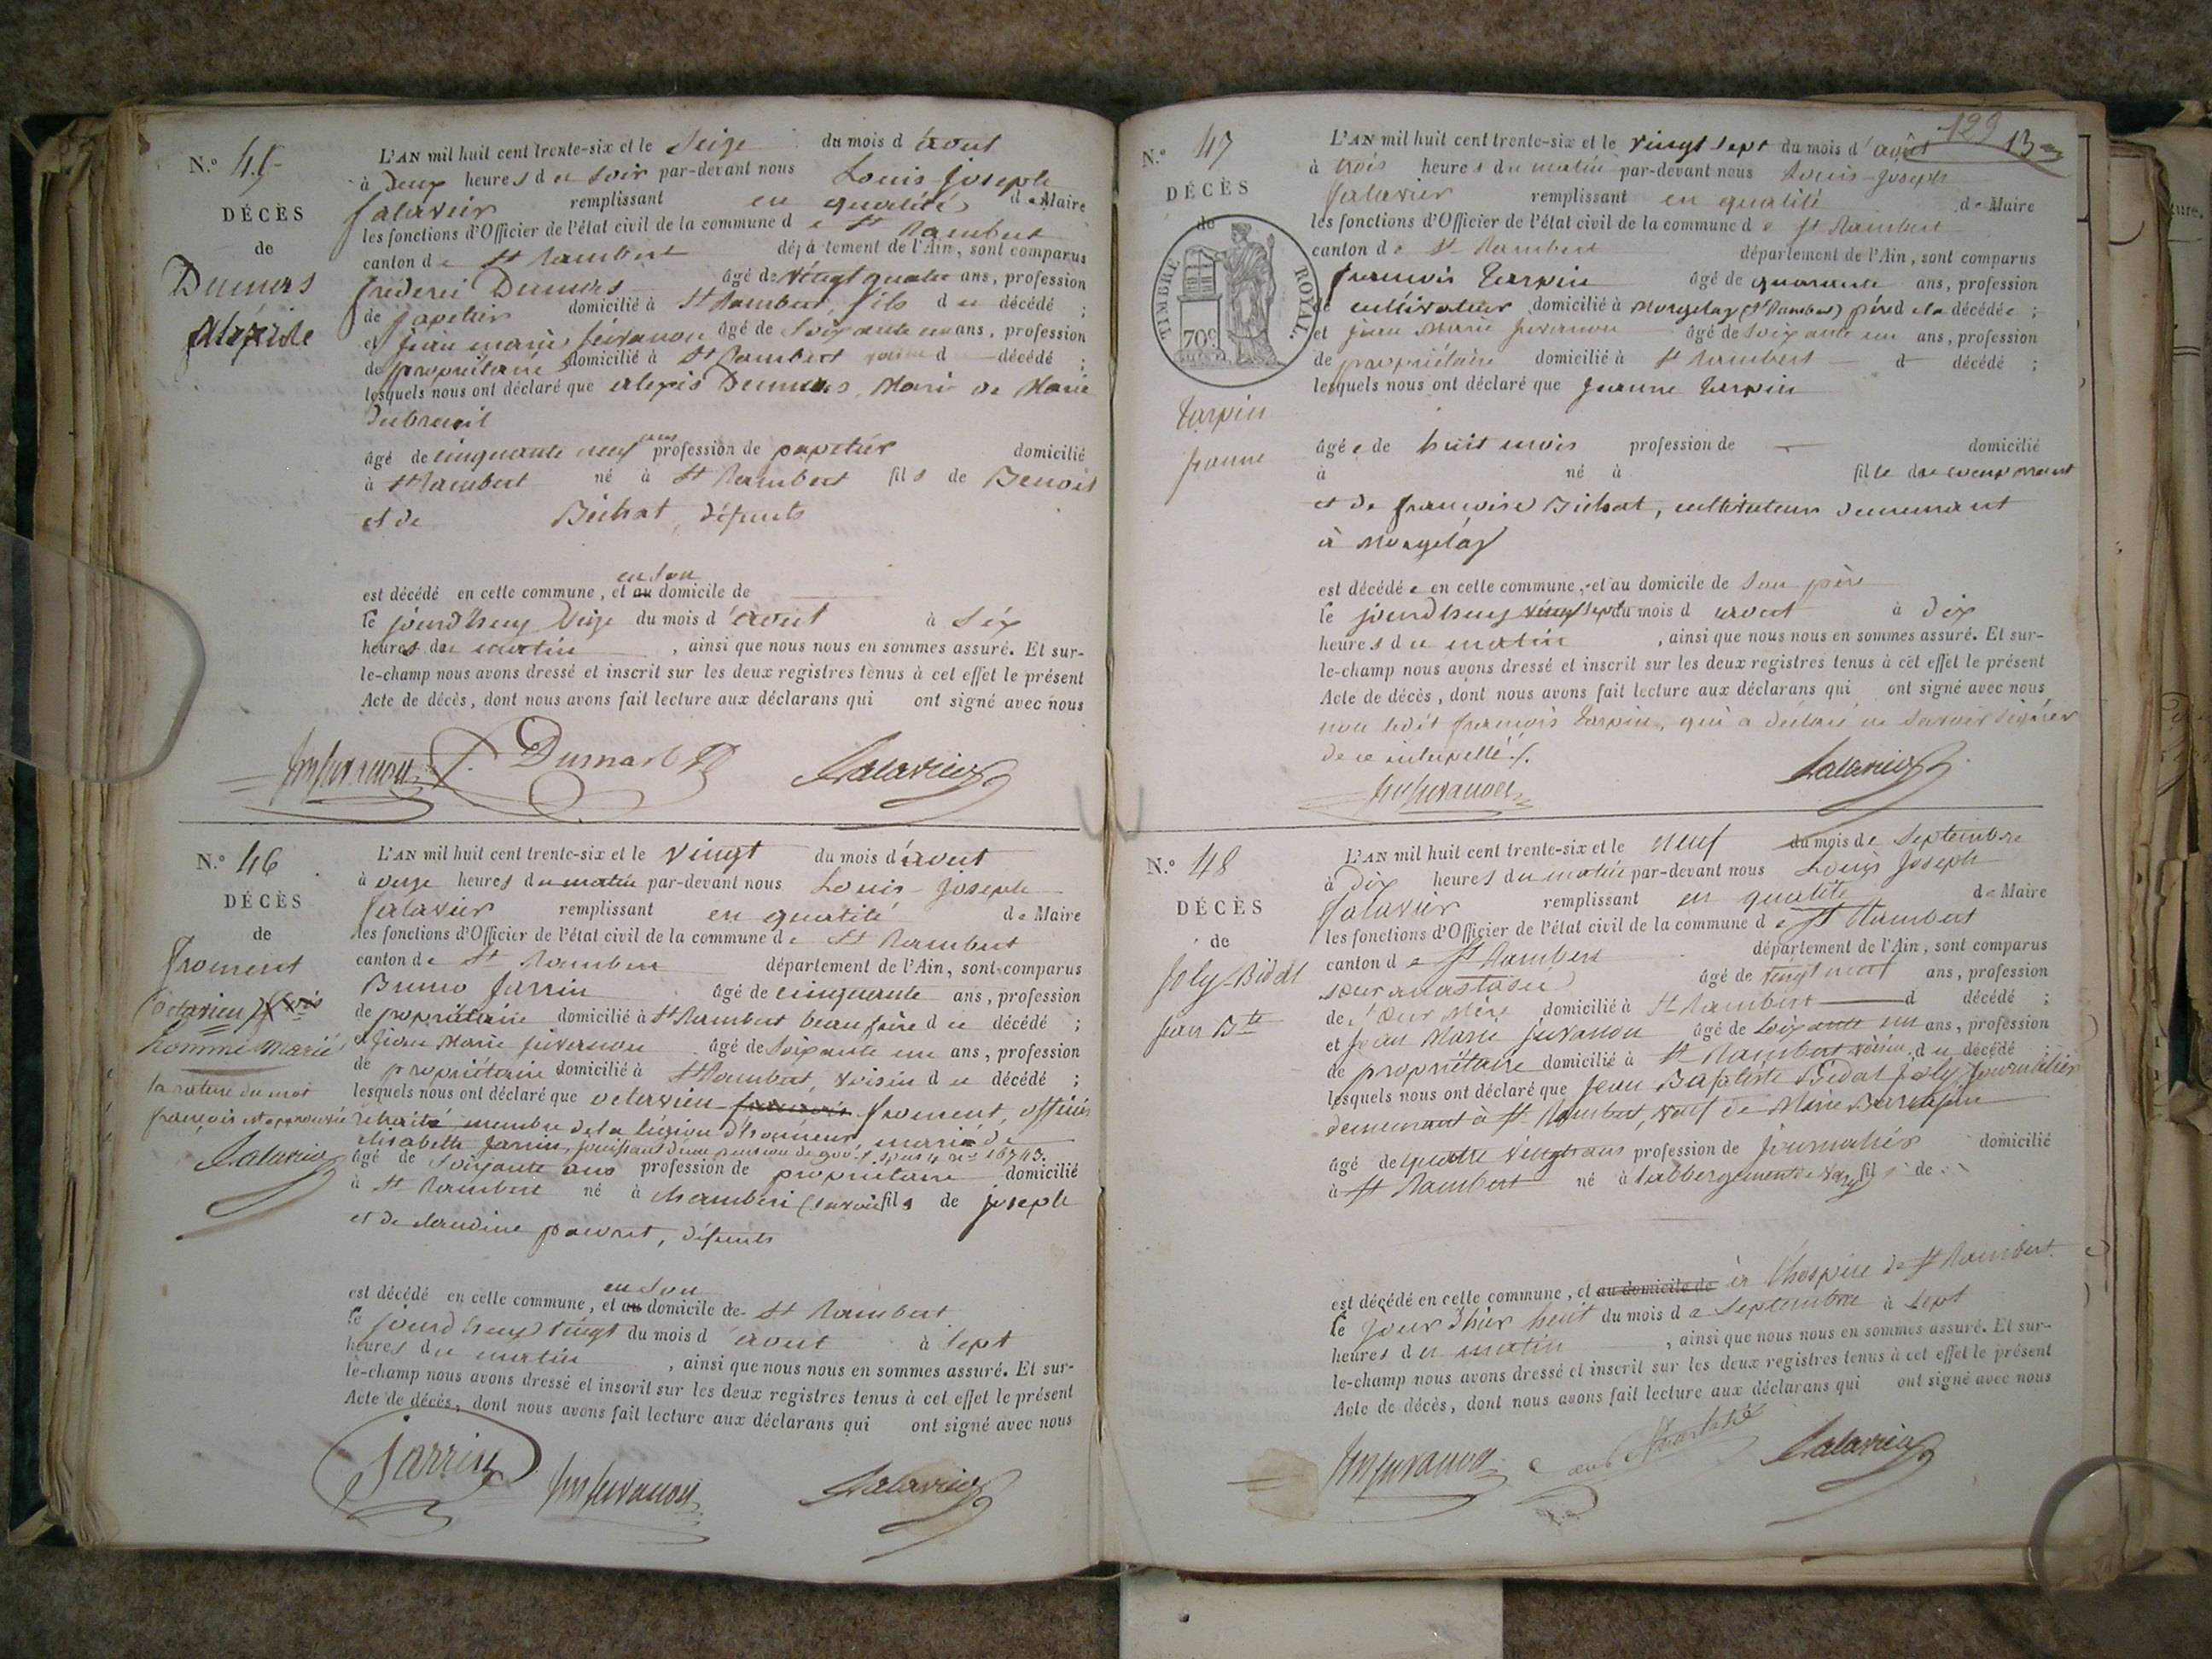 N.º 45
DÉCÈS
de
Dumars
Alexis
L'AN mil huit cent trente-six et le Seize du mois d'août
à Deux heures du soir par-devant nous Louis-joseph
Salavier remplissant en qualité de Maire
les fonctions d'Officier de l'état civil de la commune de St Rambert
canton de St Rambert département de l'Ain, sont comparus
frederic Dumars âgé de vingt quatre ans, profession
de papetier domicilié à St Rambert, fils du décédé ;
et jean marie juvanon âgé de Soixante un ans, profession
de propriétaire domicilié à St Rambert voisin d décédé ;
lesquels nous ont déclaré que alexis Dumars, Mari de Marie
Dubreuil
âgé de cinquante neuf ans profession de papetier domicilié
à St Rambert né à St Rambert fils de Benoit
et de Bichat, défunts
est décédé en cette commune, et au en son domicile de
le jourd'huy Seize du mois d'aout à Six
heures du matin , ainsi que nous nous en sommes assuré. Et sur-
le-champ nous avons dressé et inscrit sur les deux registres tenus à cet effet le présent
Acte de décès, dont nous avons fait lecture aux déclarans qui ont signé avec nous
jm juvanon f. Dumars Salavier
N.º 46
DÉCÈS
de
froment
(octavien)
homme marié
la rature du mot
françois est approuvée
Salavier
L'AN mil huit cent trente-six et le vingt du mois d'aout
à onze heures du matin par-devant nous Louis-joseph
Salavier remplissant en qualité de Maire
les fonctions d'Officier de l'état civil de la commune de St Rambert
canton de St Rambert département de l'Ain, sont comparus
Bruno Jarrin âgé de cinquante ans, profession
de propriétaire domicilié à St Rambert beaufrère du décédé ;
et jean Marie juvanon âgé de Soixante un ans, profession
de propriétaire domicilié à St Rambert, voisin du décédé ;
lesquels nous ont déclaré que octavien françois froment, officier
retraité membre de la legion d'honneur, marié de
elisabeth Jarrin, jouissant d'une pension de 900 f
âgé de Soixante ans profession de propriétaire domicilié
à St Rambert né à chamberi (savoie) fils de joseph
et de claudine pauvret, défunts
est décédé en cette commune, et au en son domicile de St Rambert
le jourd'huy vingt du mois d'aout à Sept
heures du matin , ainsi que nous nous en sommes assuré. Et sur-
le-champ nous avons dressé et inscrit sur les deux registres tenus à cet effet le présent
Acte de décès, dont nous avons fait lecture aux déclarans qui ont signé avec nous
Jarrin jm juvanon Salavier
129
N.º 47
DÉCÈS
de
TIMBRE ROYAL.
70c
Tarpin
jeanne
L'AN mil huit cent trente-six et le vingt sept du mois d'août
à trois heures du matin par-devant nous Louis-joseph
Salavier remplissant en qualité de Maire
les fonctions d'Officier de l'état civil de la commune de St Rambert
canton de St Rambert département de l'Ain, sont comparus
françois Tarpin âgé de quarante ans, profession
de cultivateur domicilié à Morgelas (St Rambert) père de la décédée ;
et jean Marie juvanon âgé de Soixante un ans, profession
de propriétaire domicilié à St Rambert d décédé ;
lesquels nous ont déclaré que jeanne Tarpin
âgée de huit mois profession de domicilié
à né à fille du comparant
et de françoise Bichat, cultivateurs demeurant
à Morgelas
est décédée en cette commune, et au domicile de Son père
le jourd'huy vingt sept du mois d aout à dix
heures du matin , ainsi que nous nous en sommes assuré. Et sur-
le-champ nous avons dressé et inscrit sur les deux registres tenus à cet effet le présent
Acte de décès, dont nous avons fait lecture aux déclarans qui ont signé avec nous
non ledit françois Tarpin, qui a déclaré ne Savoir Signer
de ce interpellé ./.
jm juvanon Salavier
N.º 48
DÉCÈS
de
Joly-Bidat
jean Bte
L'AN mil huit cent trente-six et le neuf du mois de Septembre
à Dix heures du matin par-devant nous Louis Joseph
Salavier remplissant en qualité de Maire
les fonctions d'Officier de l'état civil de la commune de St Rambert
canton de St Rambert département de l'Ain, sont comparus
soeur anastasie âgé de vingt neuf ans, profession
de Soeur Mère domicilié à St Rambert d décédé ;
et jean Marie juvanon âgé de Soixante un ans, profession
de propriétaire domicilié à St Rambert voisin du décédé ;
lesquels nous ont déclaré que jean Baptiste Bidat Joly, journalier
demeurant à St Rambert, veuf de Marie
âgé de quatre vingt ans profession de journalier domicilié
à St Rambert né à l'abbergement de Varey fils de
est décédé en cette commune, et au domicile de à l'hospice de St Rambert.
le jour d'hier huit du mois de Septembre à Sept
heures du matin , ainsi que nous nous en sommes assuré. Et sur-
le-champ nous avons dressé et inscrit sur les deux registres tenus à cet effet le présent
Acte de décès, dont nous avons fait lecture aux déclarans qui ont signé avec nous
jm juvanon Salavier